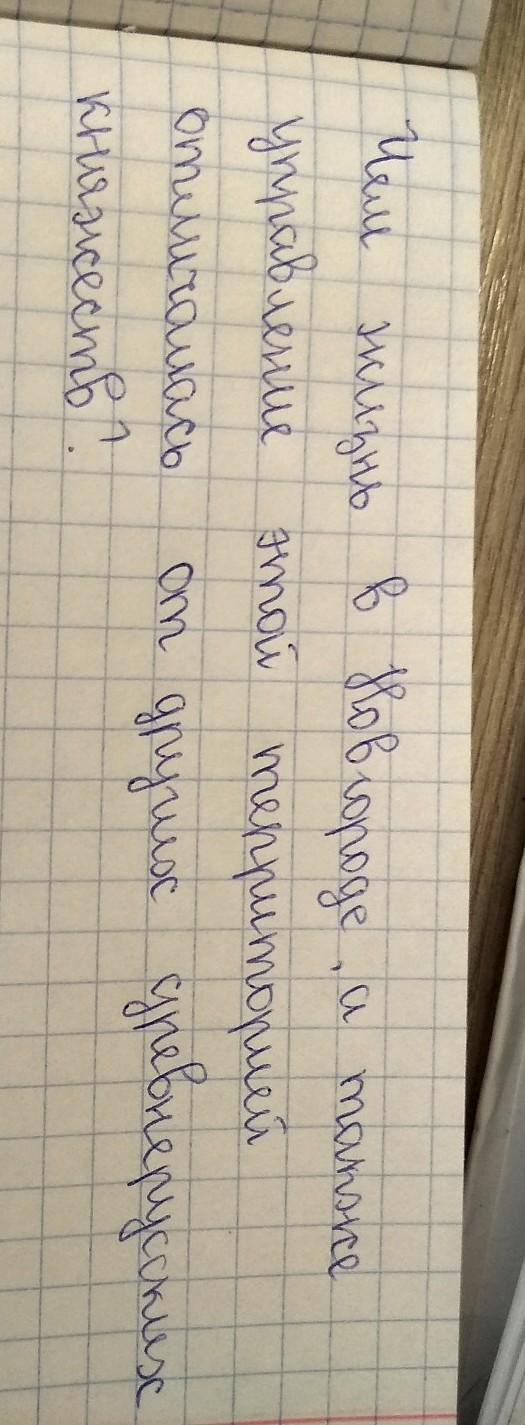 Чем жизнь в Новгороде, а также
управление этой территорией
отличалась от других древнерусских
княжеств?